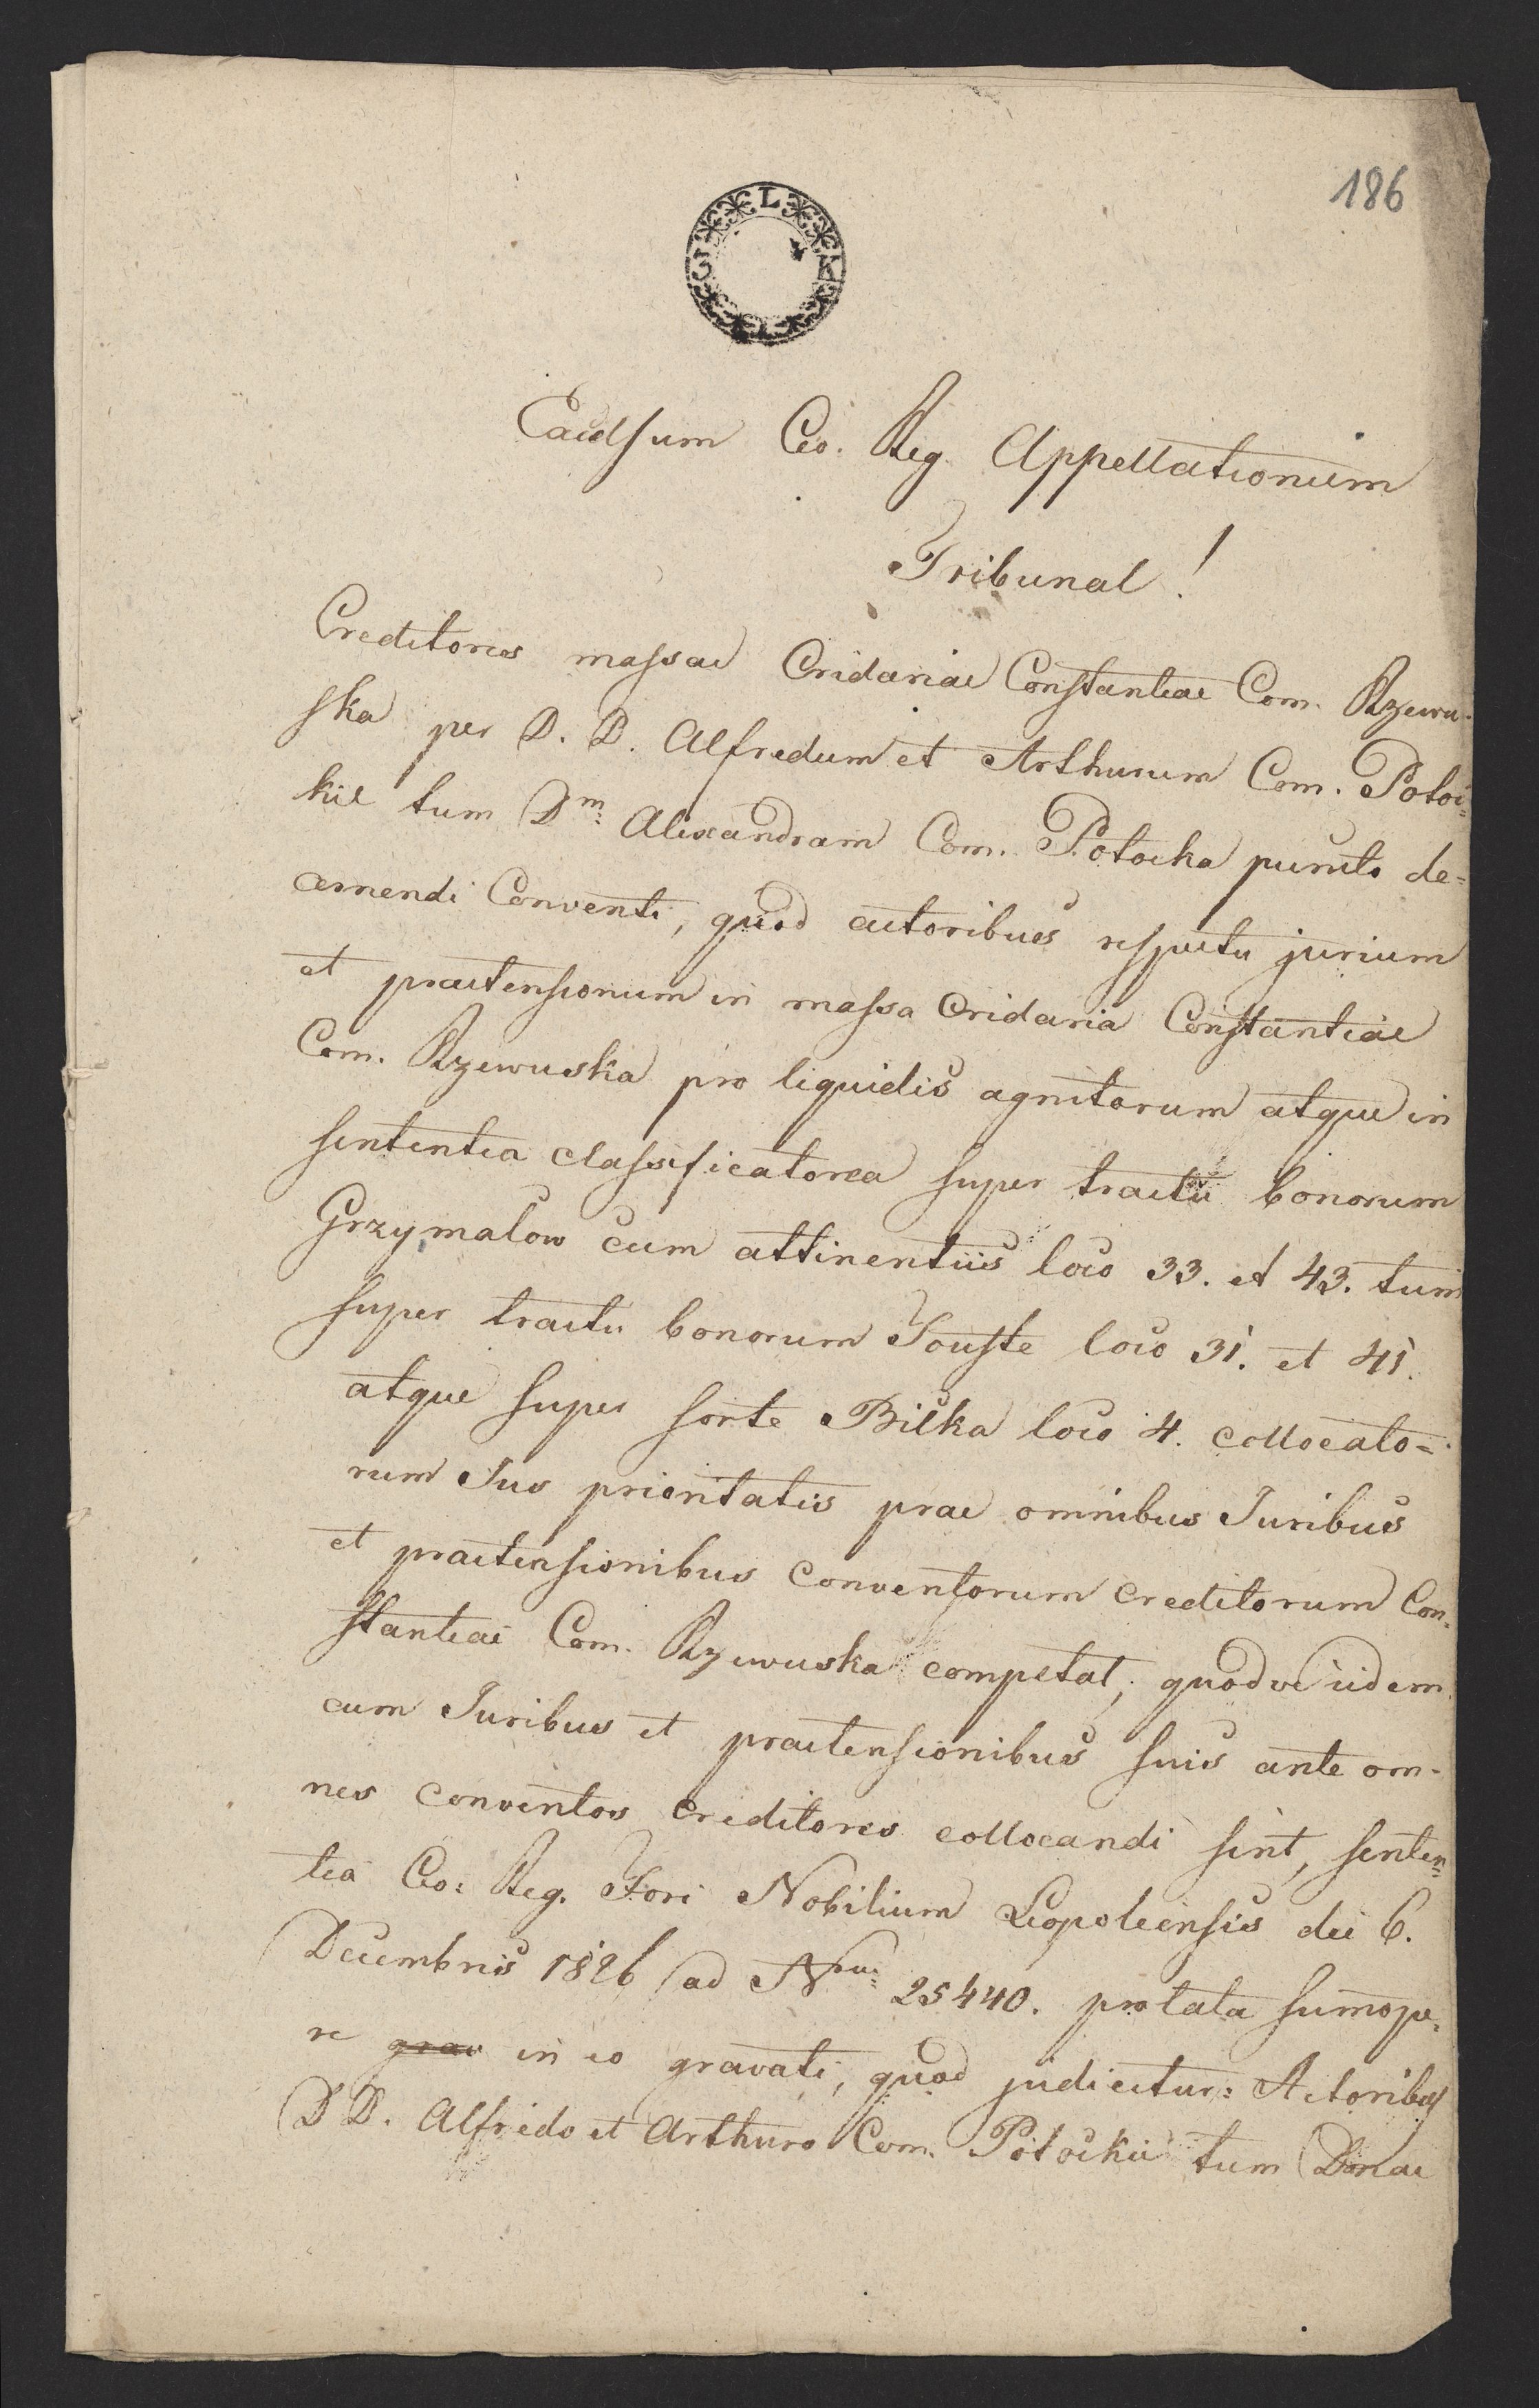 186
3 K
Excelsum Ceo. Reg. Appellationum
Tribunal!
Creditores massae Cridariae Constantiae Com. Rzewu-
ska per D. D. Alfredum et Arthurum Com. Potoc-
kie tum Dm: Alexandram Com. Potocka puncto de=
cernendi Conventi, quod actoribus respectu jurium
et praetensionum in massa Cridaria Constantiae
Com. Rzewuska pro liquidis agnitorum atque in
sententia classificatoria super tractu bonorum
Grzymalow cum attinentiis loco 33. et 43. tum
super tractu bonorum Touste loco 31. et 41.
atque super sorte Bilka loco 4. collocato=
rum Jus prioritatis prae omnibus Juribus
et praetensionibus conventorum creditorum Con-
stantiae Com. Rzewuska competat, quodve iidem
cum Juribus et praetensionibus suis ante om-
nes conventos creditores collocandi sint, senten=
tia Ceo: Reg. Fori Nobilium Leopoliensis dei 6.
Decembris 1826 ad Nrum: 25440. prolata summope-
re grav in eo gravati, quod judicetur: Actoribus
D D. Alfredo et Arthuro Com. Potockie tum Donae